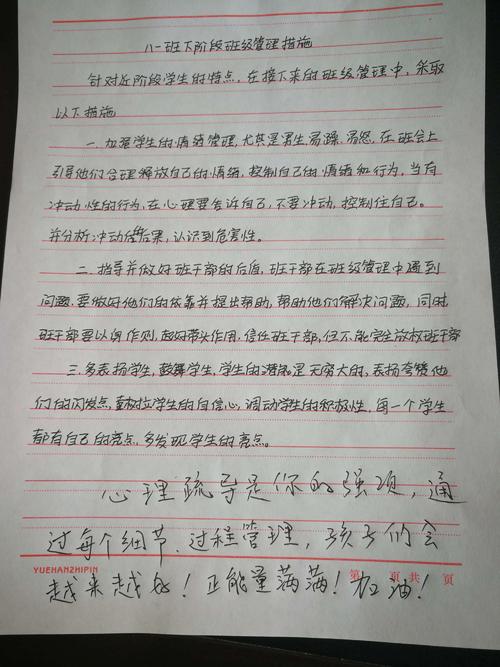 八一班下阶段班级管理措施
针对近阶段学生的特点，在接下来的班级管理中，采取
以下措施
一.加强学生的情绪管理，尤其是男生，易躁、易怒，在班会上
引导他们合理释放自己的情绪，控制自己的情绪和行为，当有
冲动性的行为，在心理要告诉自己，不要冲动，控制住自己。
并分析冲动后后果，认识到危害性。
二.指导并做好班干部的后盾，班干部在班级管理中遇到
问题，要做好他们的依靠并提出帮助，帮助他们解决问题，同时
班干部要以身作则，起好带头作用，信任班干部，但不能完全放权班干部
三.多表扬学生，鼓舞学生，学生的潜能是无穷大的，表扬夸赞他
们的闪发点，重树立学生的自信心，调动学生的积极性，每一个学生
都有自己的亮点，多发现学生的亮点。
心理疏导是你的强项，通
过每个细节、过程管理，孩子们会
越来越好！正能量满满！加油！
YUEHANZHIPIN 第 页 共 页